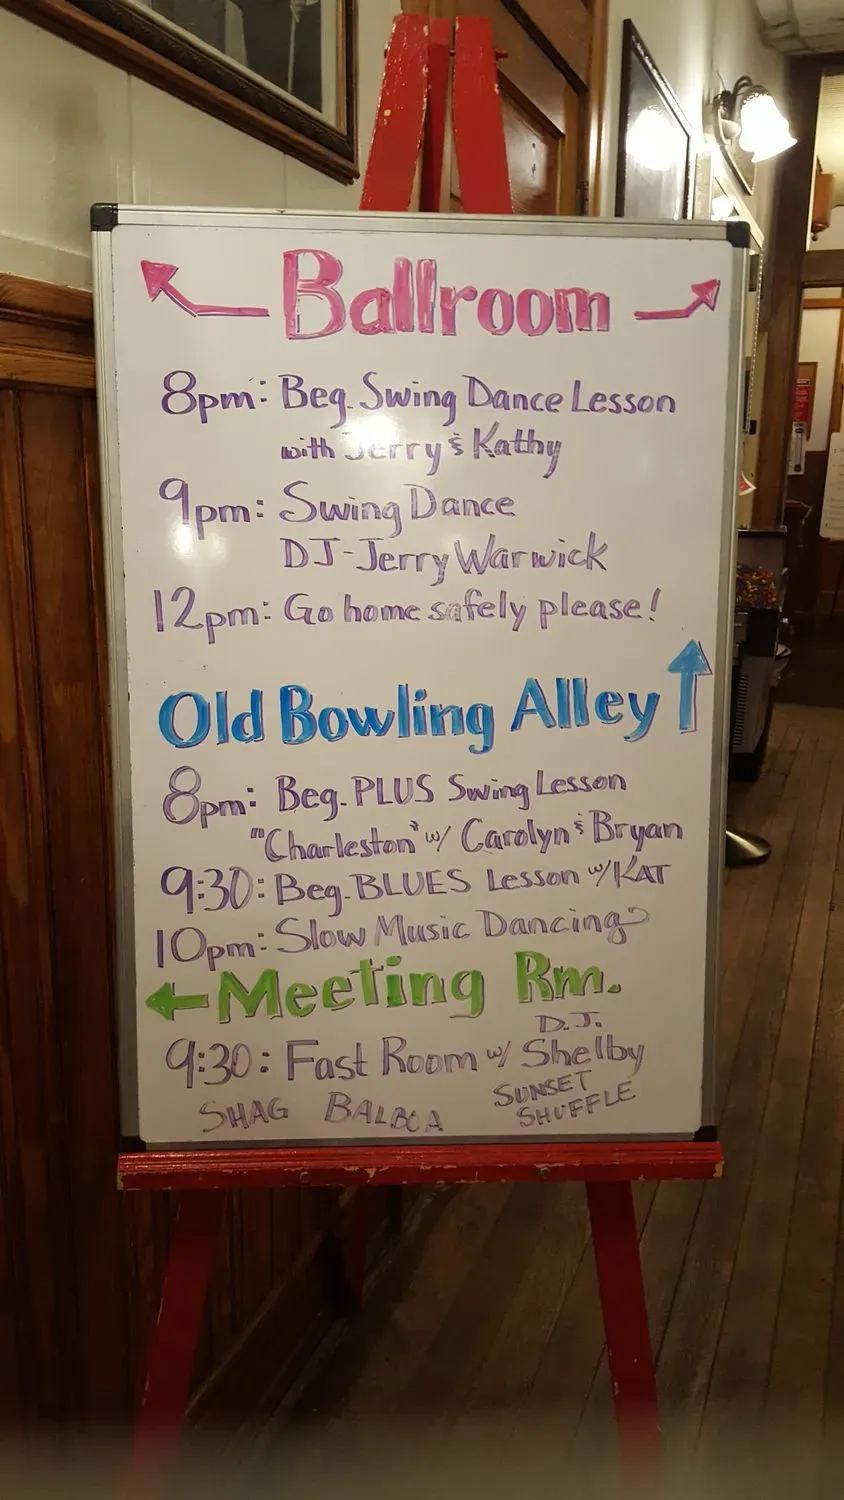 Ballroom
8pm: Beg. Swing Dance Lesson
with Jerry & Kathy
9pm: Swing Dance
DJ-Jerry Warwick
12pm: Go home safely please!
Old Bowling Alley
8pm: Beg. PLUS Swing Lesson
"Charleston" w/ Carolyn & Bryan
9:30: Beg. BLUES Lesson w/ KAT
10pm: Slow Music Dancing
Meeting Rm.
D.J.
9:30: Fast Room w/ Shelby
SHAG BALBOA SUNSET
SHUFFLE